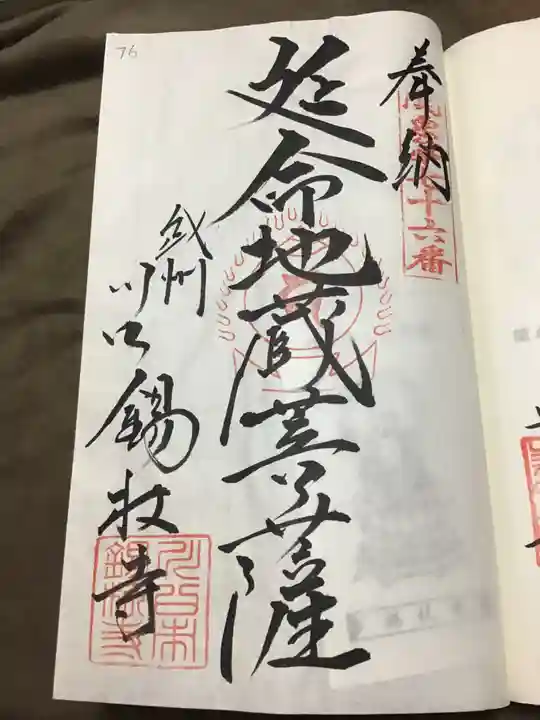 奉納
七十六番
延命地蔵菩薩
武州
川口錫杖寺
76